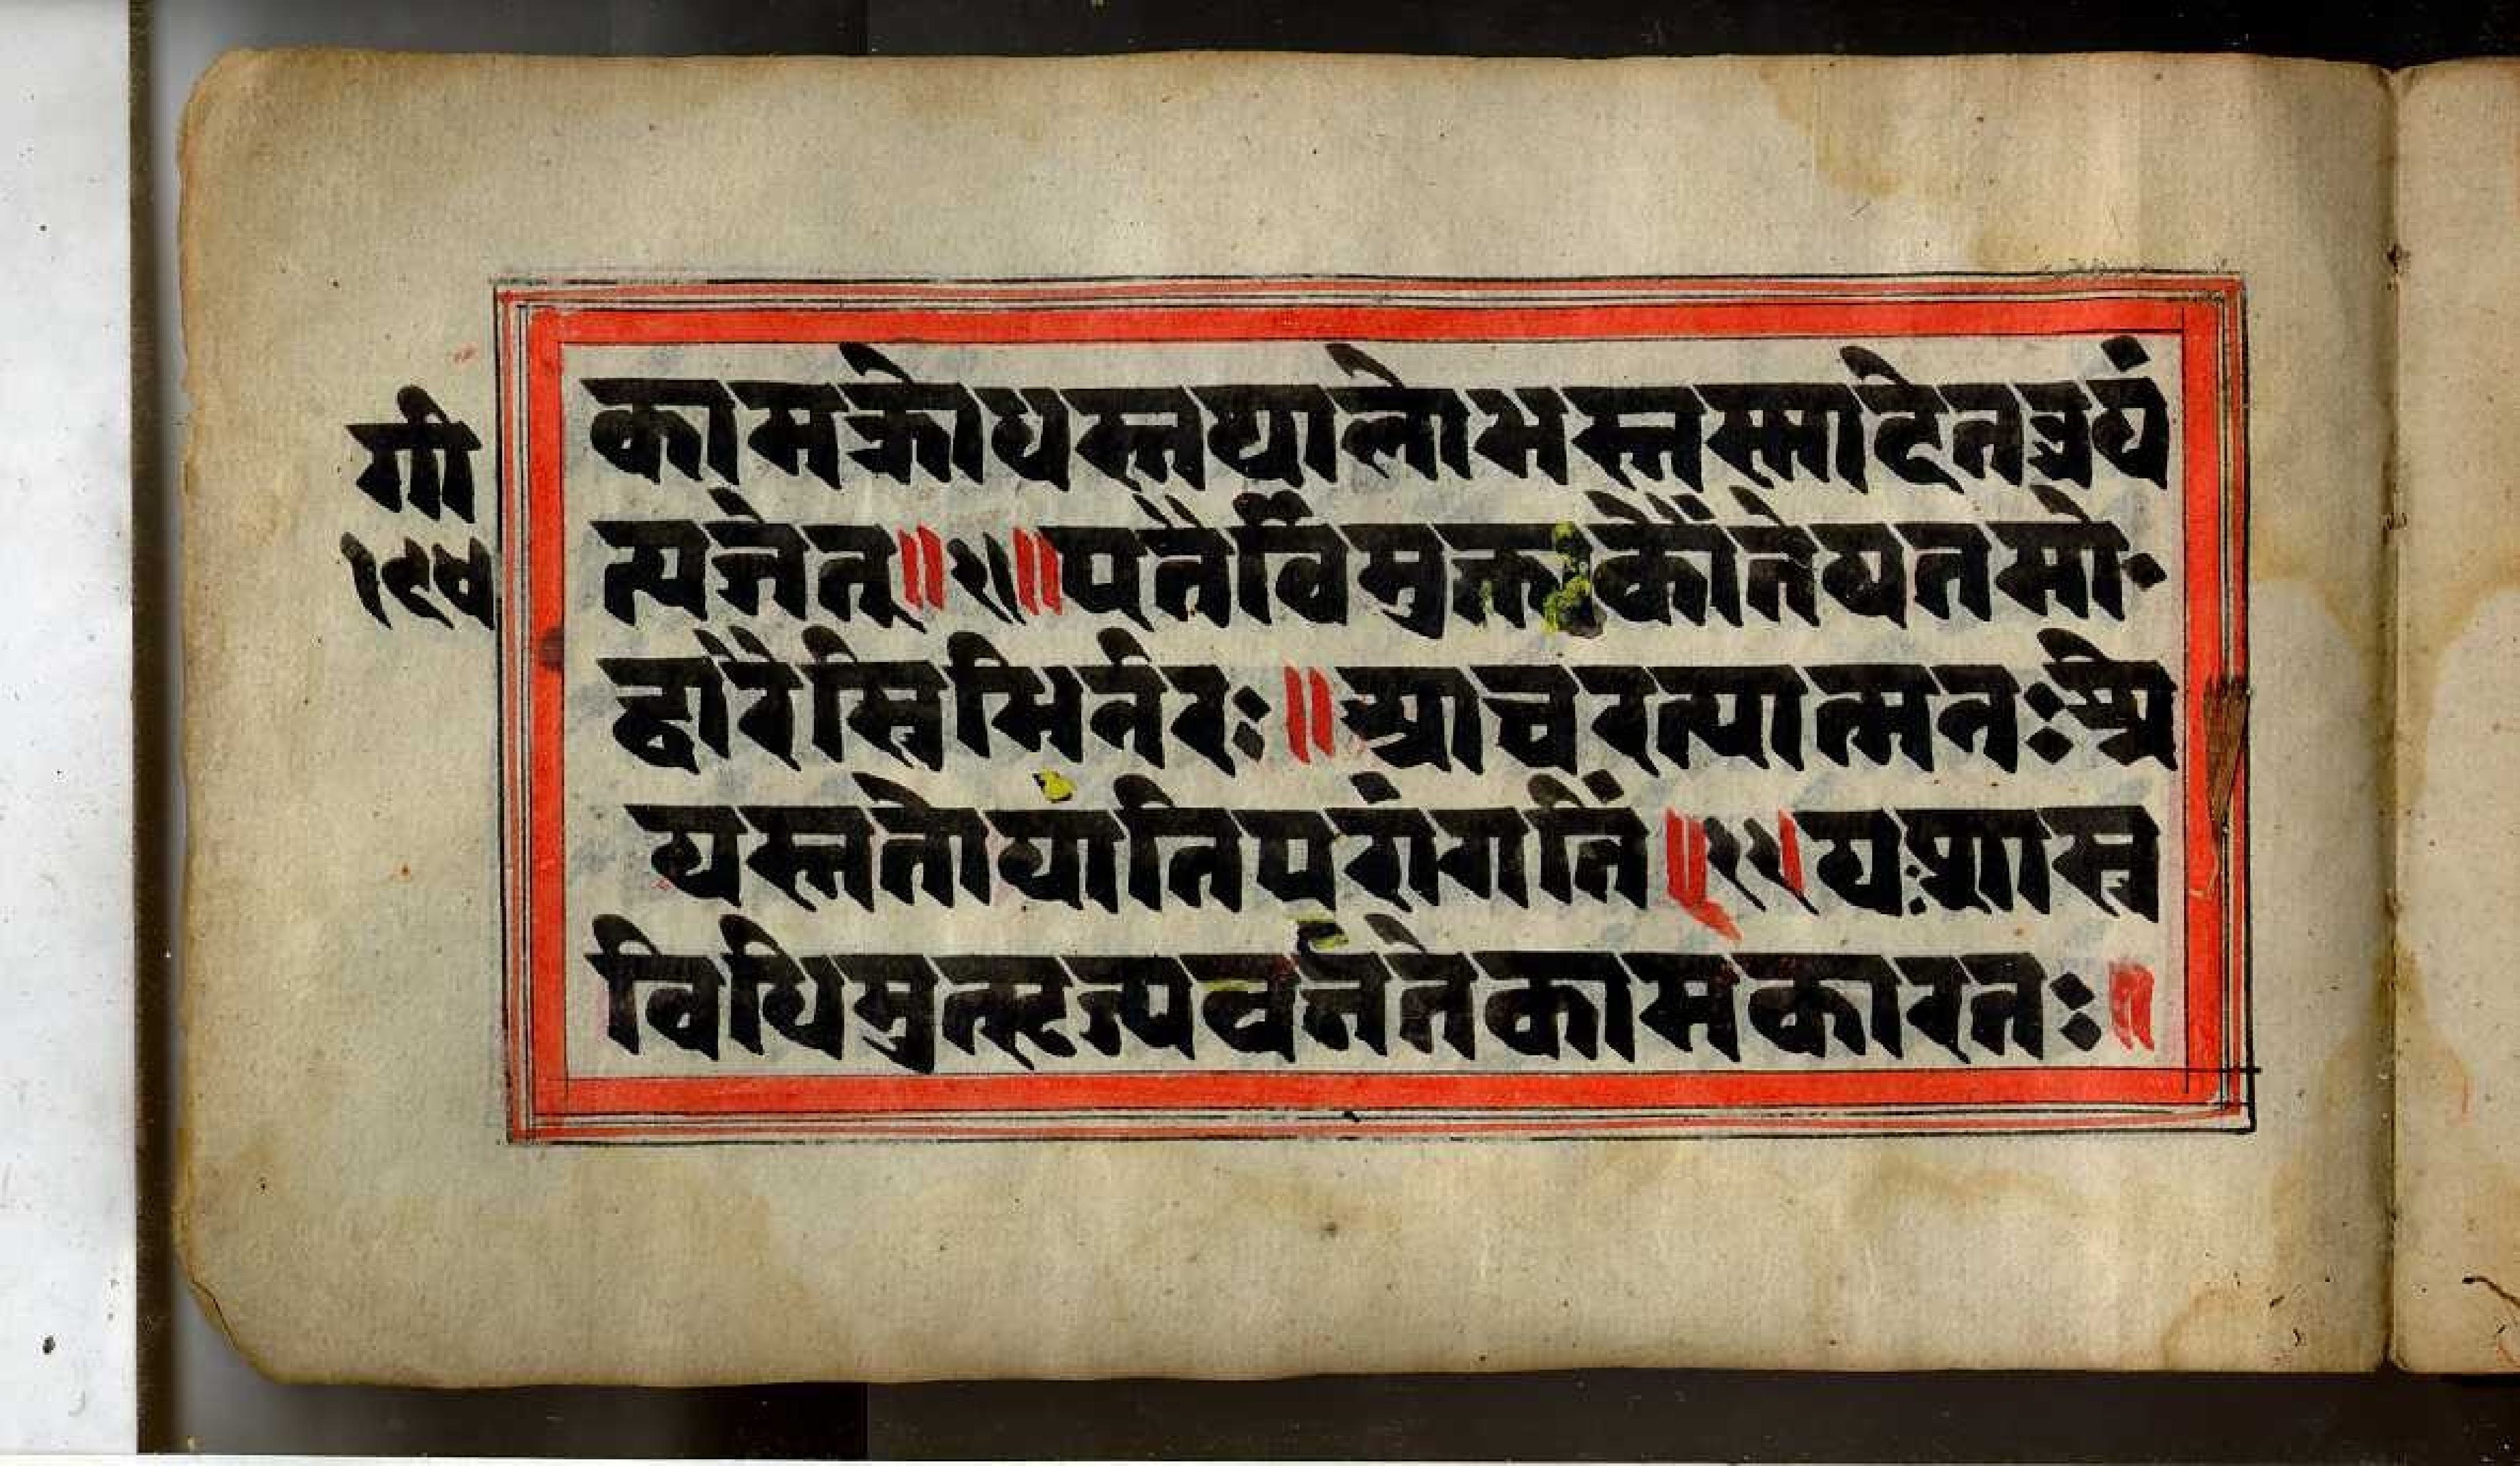 गी
१९४
कामक्रोधस्तथालोभस्तस्मादेतत्रयं
त्यजेत्॥२१॥एतैर्विमुक्तःकौंतेयतमो
द्वारैस्त्रिभिर्नरः॥आचरत्यात्मनःश्रे
यस्ततोयातिपरांगतिं॥२२॥यःशास्त्र
विधिमुत्सृज्यवर्ततेकामकारतः॥